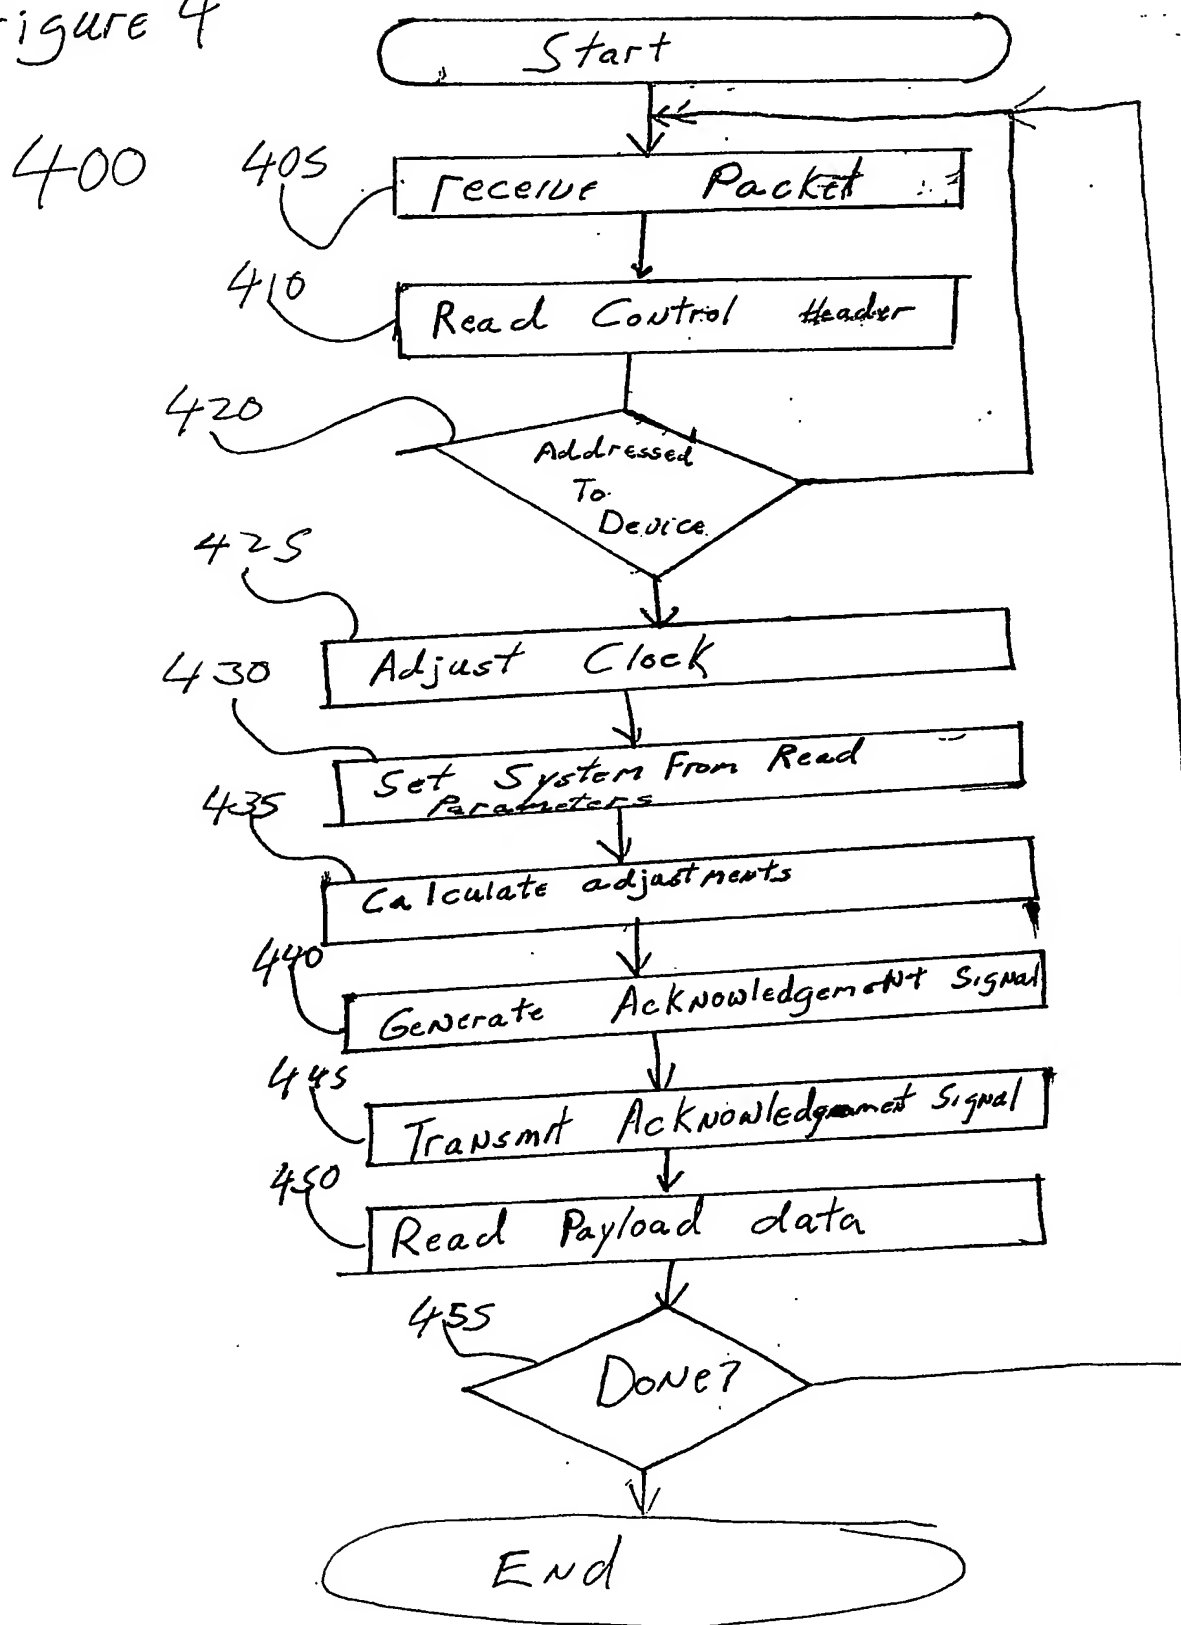 Figure 4
400
Start
405
receive Packet
410
Read Control Header
420
Addressed
To
Device
425
Adjust Clock
430
Set System From Read
Parameters
435
Calculate adjustments
440
Generate Acknowledgement Signal
445
Transmit Acknowledgment Signal
450
Read Payload data
455
Done?
End